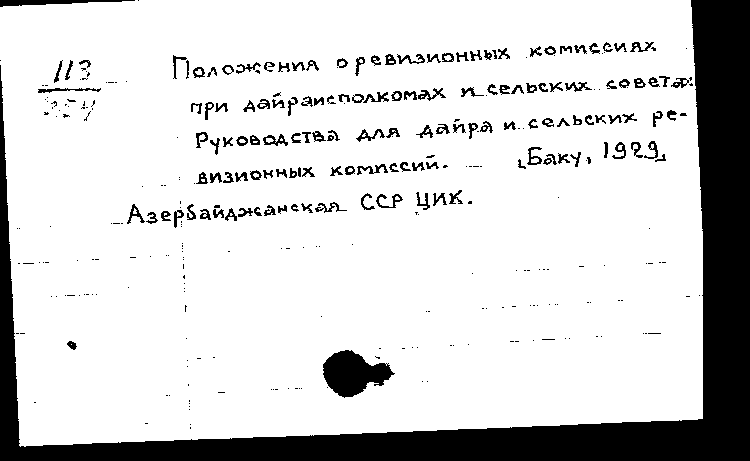 113
254
Положения о ревизионных комиссиях
при дайраисполкомах и сельских советах
Руководства для дайра и сельских ре-
визионных комиссий. — [Баку, 1929]
Азербайджанская ССР ЦИК.